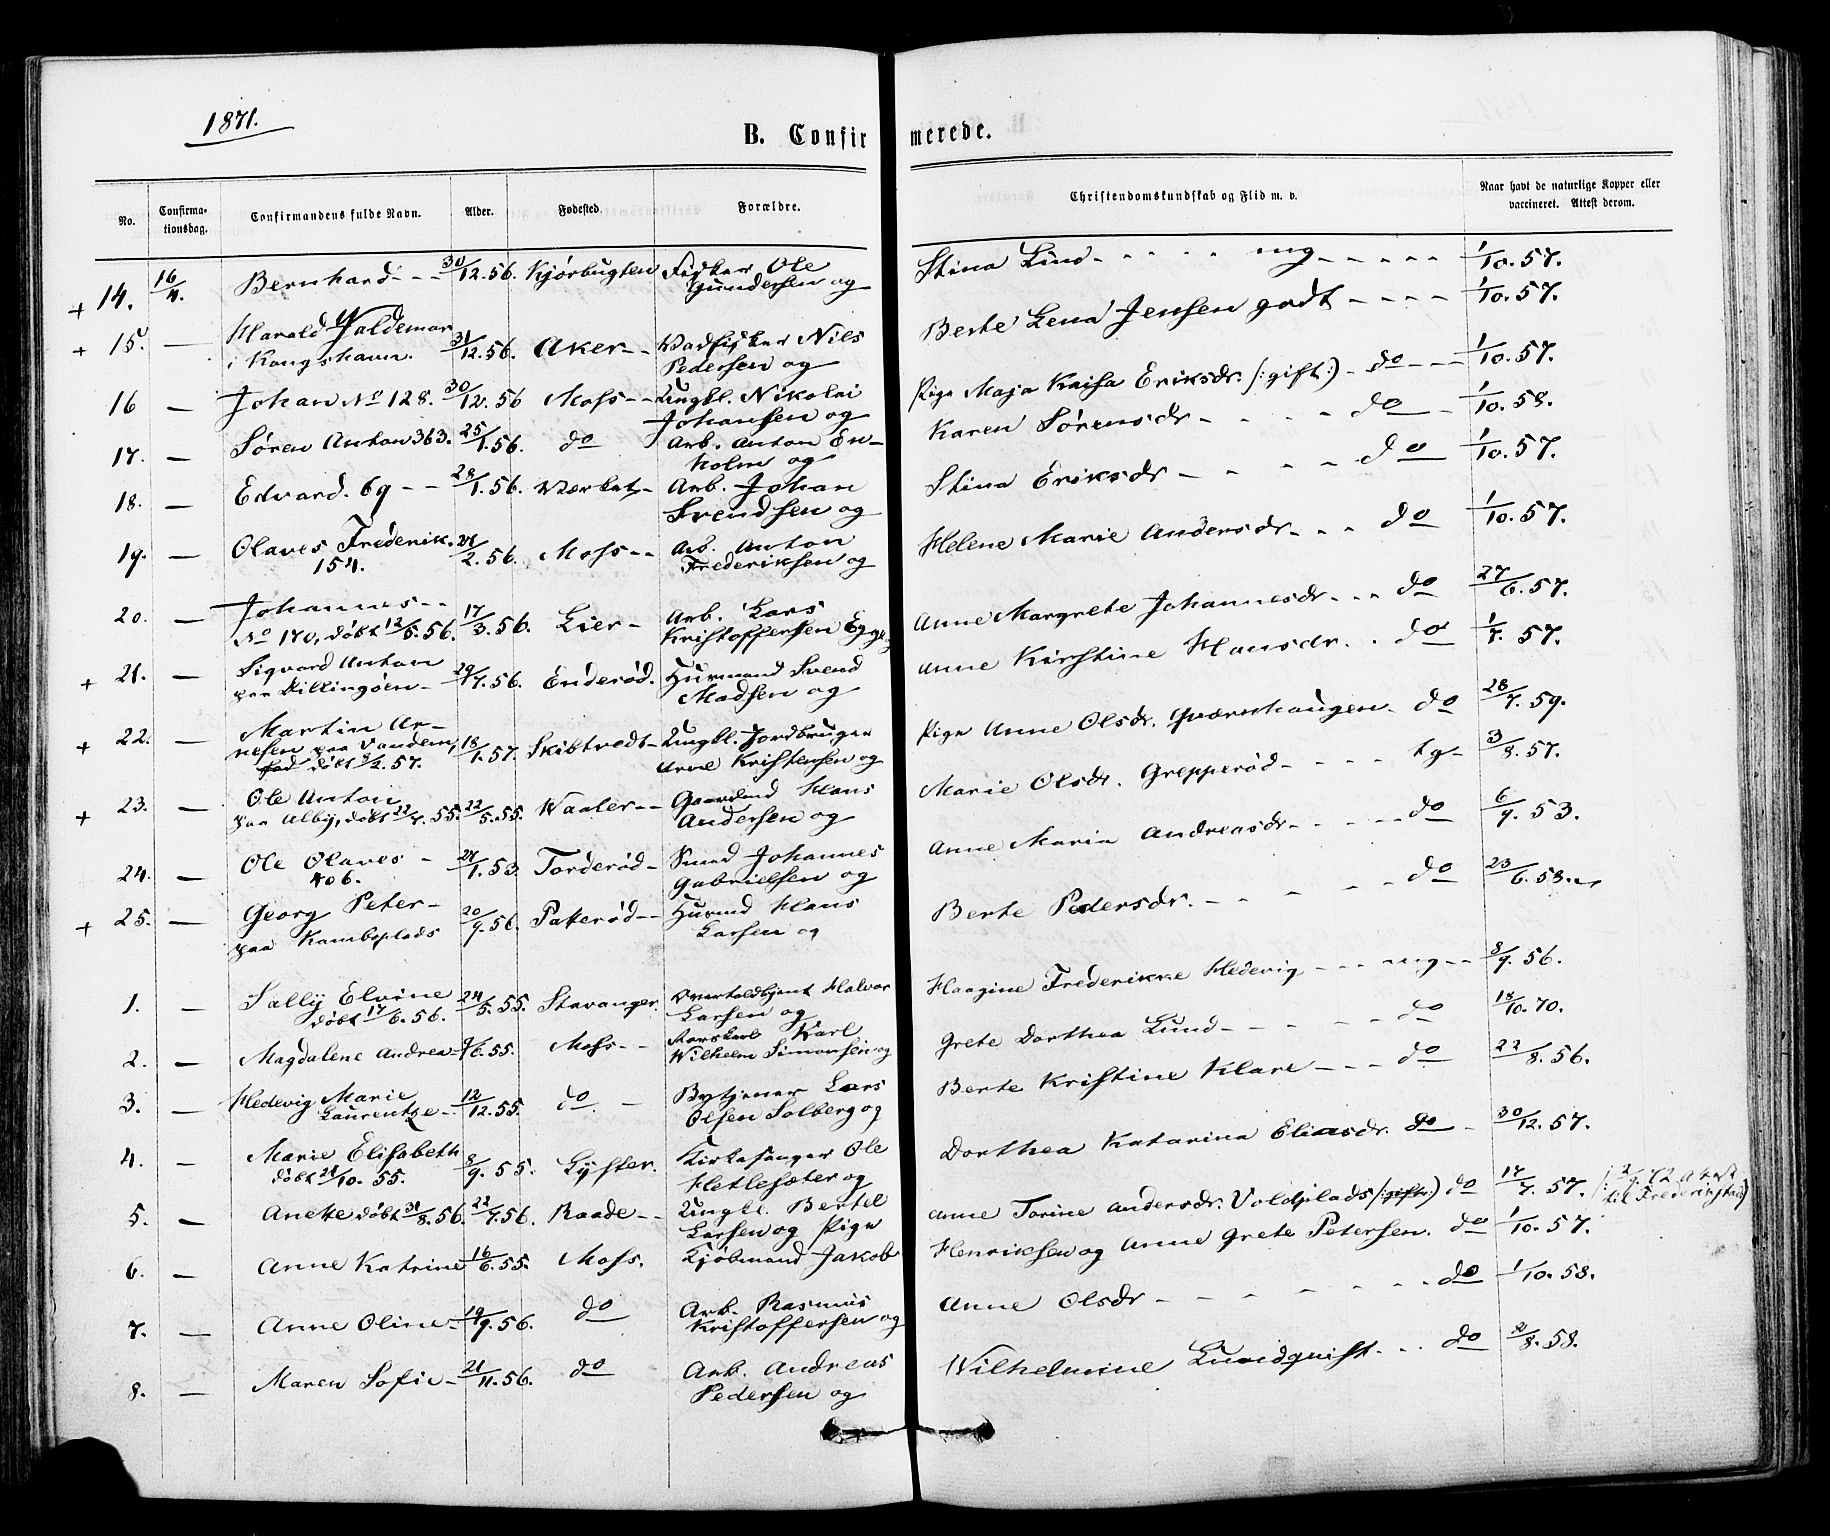 1871.
B. Confirmerede.
No. Confirmationsdag. Confirmandens fulde Navn. Alder. Fødested. Forældre. Christendomskundskab og Flid m. v. Naar havt de naturlige Kopper eller vaccineret. Attest derom.
+ 14. 16/4. Bernhard - - 30/12.56. Kjørbugten Fisker Ole Stina Lind - - - - - mg - - - - - 1/10.57.
Gundersen og
+ 15. — Harald Valdemar 31/12.56. Aker - - Vadfisker Nils Berte Lena Jensen godt - - - - 1/10.57.
i Kongshavn. Pedersen og
16 — Johan No 128. 30/12.56 Moss - - Ungkl. Nikolai Pige Maja Kaisa Eriksdr. (: gift :) - do - - - 1/10.57.
Johansen og
17. — Søren Anton 363. 25/1.56. do Arb. Anton En- Karen Sørensdr - - - - do - 1/10.58.
kolm og
18. — Edvard. 69 - - 28/1.56. Værket - Arb. Johan Stina Eriksdr - - - - do 1/10.57.
Svendsen og
19. — Olaves Frederik. 21/2.56. Moss - - Arb. Anton Helene Marie Andersdr. - - do 1/10.57.
154. Frederiksen og
20. — Johannes - - 17/3.56. Lier - Arb. Lars Anne Margrete Johannesdr - - - do 27/6.57.
No 170, døbt 12/5.56. Kristoffersen Egge og
+ 21. — Sigvard Anton 29/7.56. Enderød. Husmand Svend Anne Kirstine Hansdr. . . do 1/7.57.
paa Dillingøen - Madsen og
+ 22. — Martin Ar- 18/1.57. Skibtvedt - Ungkl. Jordbruger Pige Anne Olsdr. Qværnhaugen - do 28/7.59.
nesen paa Vandem, Arne Kristensen og
fød døbt 8/2.57.
+ 23. — Ole Anton 22/5.55. Waaler - - Gaardmd Hans Marie Olsdr. Grepperød - - - - tg - 3/8.57.
paa Alby, døbt 22/7.55. Andersen og
24. — Ole Olaves - 21/1.53. Torderød - Smed Johannes Anne Maria Andreasdr - - - - - do 6/9.53.
406. Gabrielsen og
+ 25. — Georg Peter - 20/9.56. Paterød - - Husmd Hans Berte Pedersdr. - - - - - do 23/6.58.
paa Kamboplads Larsen og
1. — Sally Elvine 24/5.55. Stavanger. Overtoldbjent Halvor Haagine Frederikke Hedevig - - - mg - - 8/9.56.
døbt 17/6.56. Larsen og
2. — Magdalene Andrea - 9/6.55. Moss - - Karl Grete Dorthea Lund - - - - - do 18/10.70.
Wilhelm Simonsen og
3. — Hedevig Marie 12/12.55. do. - Bytjener Lars Berte Kristine Klare - - - do 22/8.56.
Laurentze - Olsen Solberg og
4. — Marie Elisabeth 8/9.55. Lyster. Kirkesanger Ole Dorthea Katarina Eliasdr. do - 30/12.57.
døbt 21/10.55. Hetlesæter og
5. — Anette døbt 31/8.56. 22/7.56. Raade - - Ungkl. Bertel Anne Torine Andersdr. Voldsplads (: gift :) do 17/7.57. (: 2/9.72 Attest
Larsen og Pige til Frederikstad)
6. — Anne Katrine 16/6.55. Moss. Kjøbmand Jakob Henriksen og Anne Grete Petersen. do 1/10.57.
7. — Anne Oline - 19/9.56. do Arb. Rasmus Anne Olsdr - - - - - - do 1/10.58.
Kristoffersen og
8. — Maren Sofie - 21/11.56. do Arb. Andreas Wilhelmine Lundquist. - - do 2/8.58.
Pedersen og